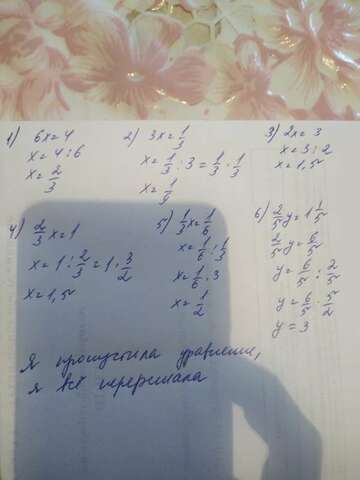 1) 6x=4
x=4:6
x=2/3
2) 3x=1/3
x=1/3:3=1/3·1/3
x=1/9
3) 2x=3
x=3:2
x=1,5
4) 2/3x=1
x=1:2/3=1·3/2
x=1,5
5) 1/3x=1/6
x=1/6:1/3
x=1/6·3
x=1/2
6) 2/5y=1 1/5
2/5y=6/5
y=6/5:2/5
y=6/5·5/2
y=3
Я пропустила уравнение,
я всё перерешала